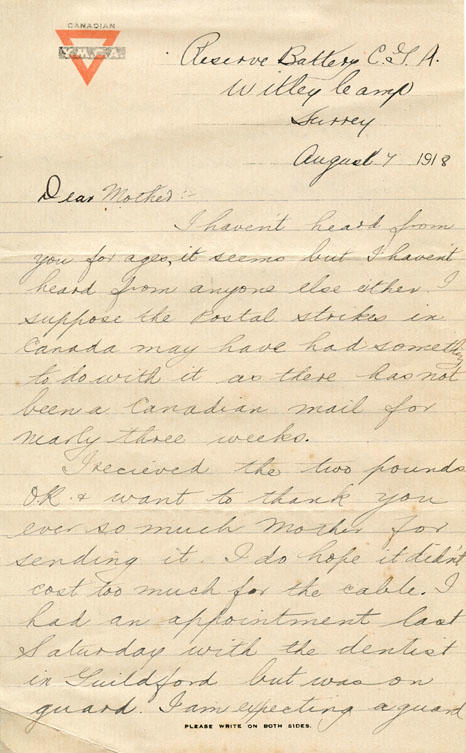 CANADIAN
Y.M.C.A.
Reserve Battery C.F.A.
Witley Camp
Surrey
August 7 1918
Dear Mother:-
I haven't heard from
you for ages, it seems but I haven't
heard from anyone else either. I
suppose the Postal strikes in
Canada may have had something
to do with it as there has not
been a Canadian mail for
nearly three weeks.
I recieved the two pounds
OK. & want to thank you
ever so much Mother for
sending it. I do hope it didn't
cost too much for the cable. I
had an appointment last
Saturday with the dentist
in Guildford but was on
guard. I am expecting a guard
PLEASE WRITE ON BOTH SIDES.